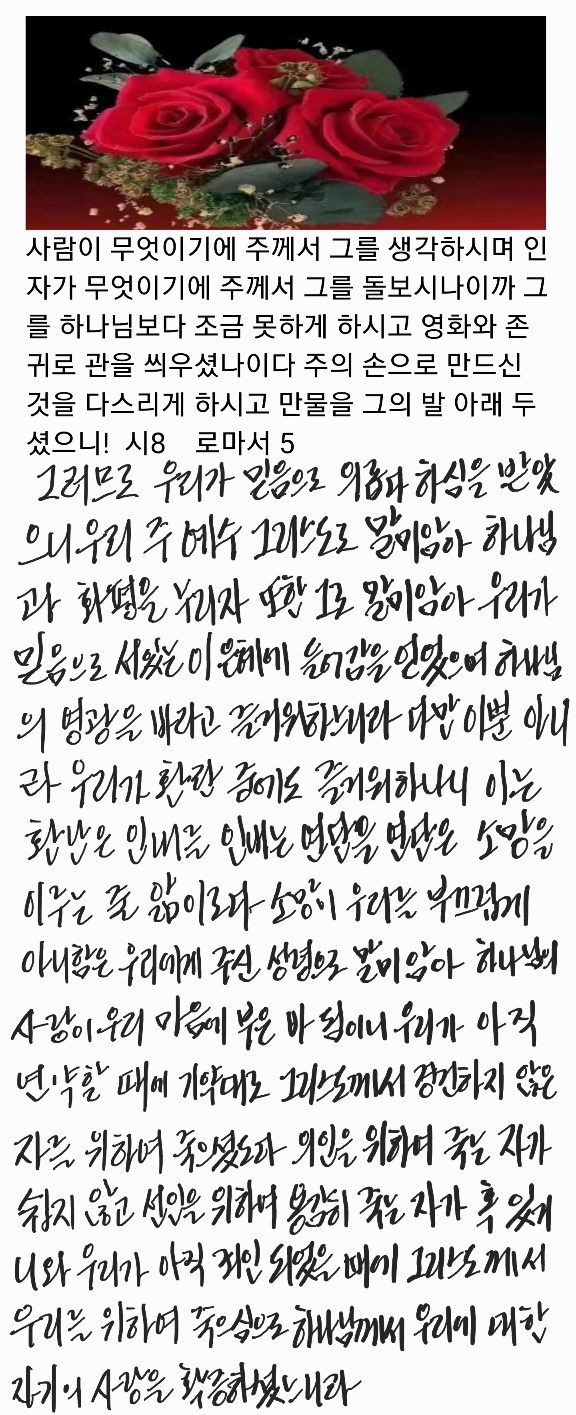 사람이 무엇이기에 주께서 그를 생각하시며 인
자가 무엇이기에 주께서 그를 돌보시나이까 그
를 하나님보다 조금 못하게 하시고 영화와 존
귀로 관을 씌우셨나이다 주의 손으로 만드신
것을 다스리게 하시고 만물을 그의 발 아래 두
셨으니! 시8 로마서 5
그러므로 우리가 믿음으로 의롭다 하심을 받았
으니 우리 주 예수 그리스도로 말미암아 하나님
과 화평을 누리자 또한 그로 말미암아 우리가
믿음으로 서있는 이 은혜에 들어감을 얻었으며 하나님
의 영광을 바라고 즐거워하느니라 다만 이뿐 아니
라 우리가 환난 중에도 즐거워하나니 이는
환난은 인내를 인내는 연단을 연단은 소망을
이루는 줄 앎이로다 소망이 우리를 부끄럽게
아니함은 우리에게 주신 성령으로 말미암아 하나님의
사랑이 우리 마음에 부은 바 됨이니 우리가 아직
연약할 때에 기약대로 그리스도께서 경건하지 않은
자를 위하여 죽으셨도다 의인을 위하여 죽는 자가
쉽지 않고 선인을 위하여 용감히 죽는 자가 혹 있거
니와 우리가 아직 죄인 되었을 때에 그리스도께서
우리를 위하여 죽으심으로 하나님께서 우리에 대한
자기의 사랑을 확증하셨느니라